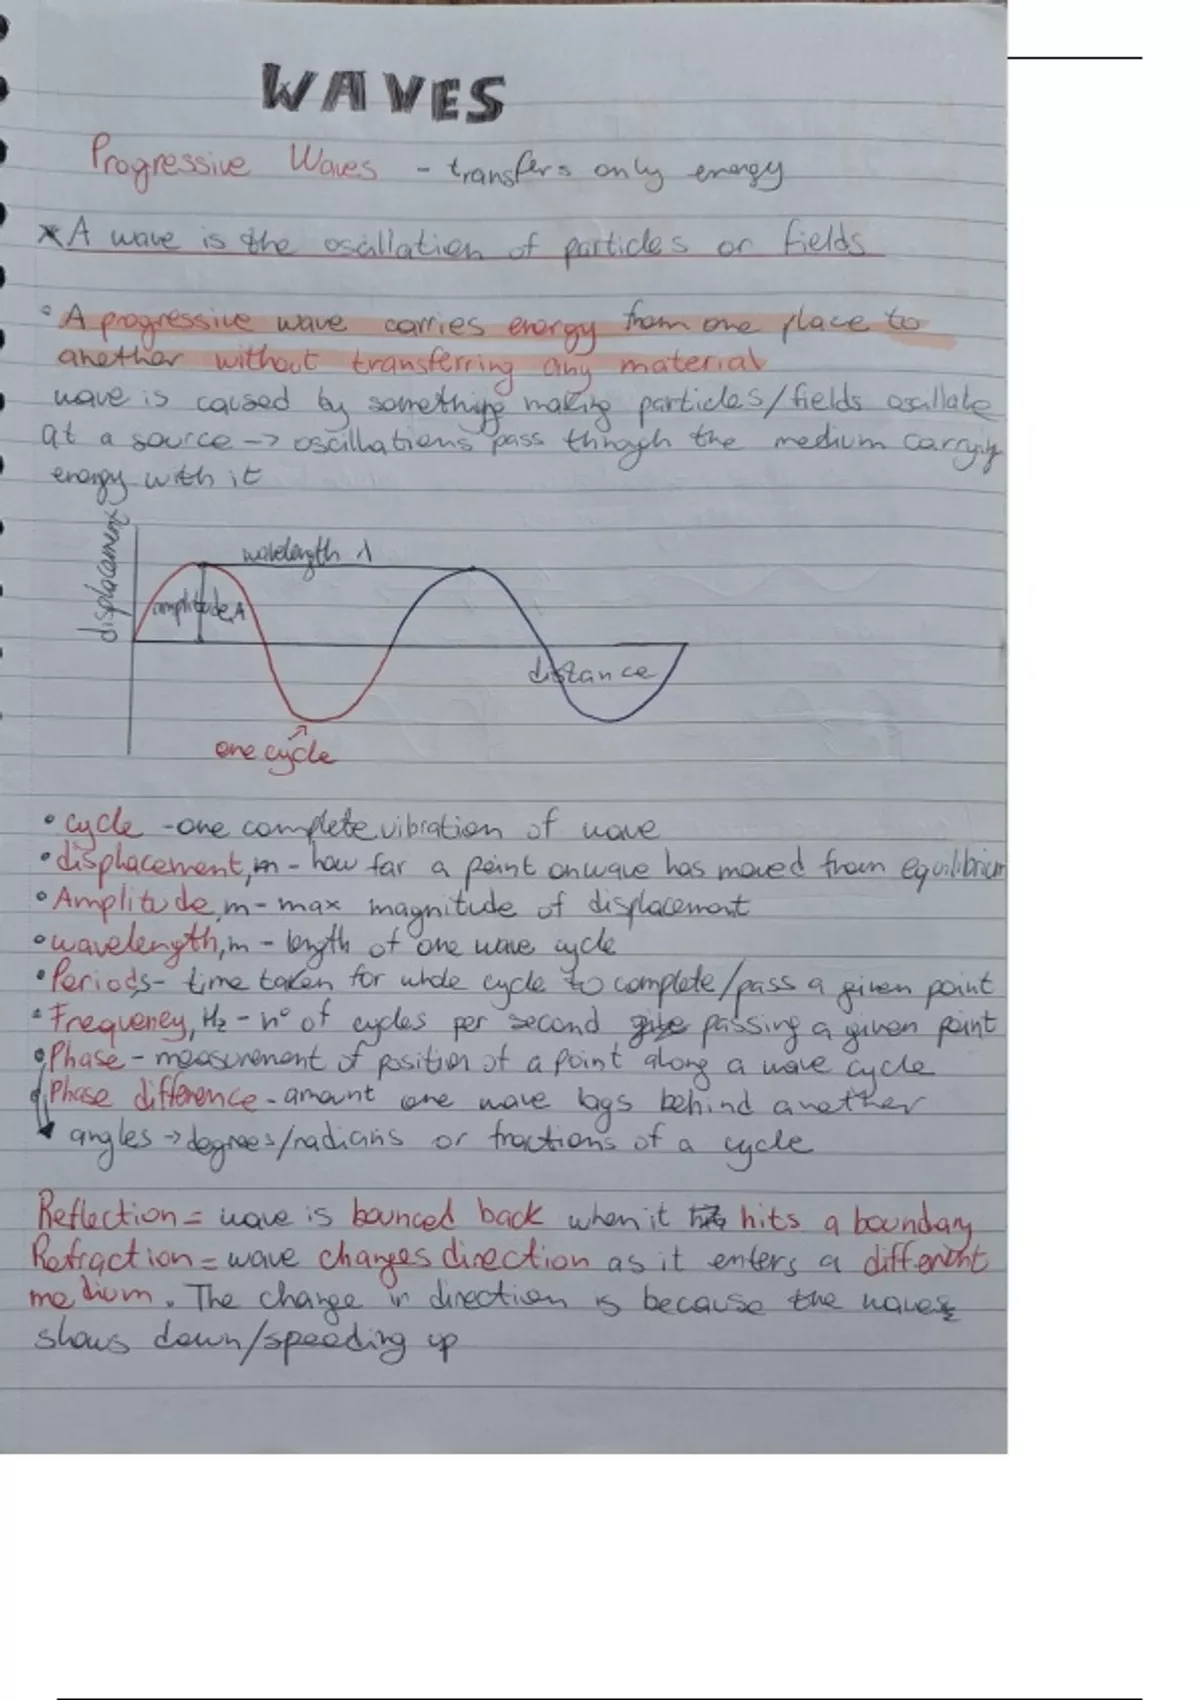 WAVES
Progressive Waves - transfers only energy
*A wave is the oscillation of particles or fields
• A progressive wave carries energy from one place to
another without transferring any material
wave is caused by something making particles/fields oscillate
at a source -> oscillations pass through the medium carryng
energy with it
displacement
wavelength λ
amplitude, A
distance
one cycle
• cycle - one complete vibration of wave
• displacement, m - how far a point on wave has moved from equilibrium
• Amplitude, m - max magnitude of displacement
• wavelength, m - length of one wave cycle
• Period, s - time taken for whole cycle to complete/pass a given point
• Frequency, Hz - nº of cycles per second passing a given point
• Phase - measurement of position of a point along a wave cycle
• Phase difference - amount one wave lags behind another
angles -> degrees/radians or fractions of a cycle
Reflection = wave is bounced back when it hits a boundary
Refraction = wave changes direction as it enters a different
medium. The change in direction is because the waves
slows down/speeding up